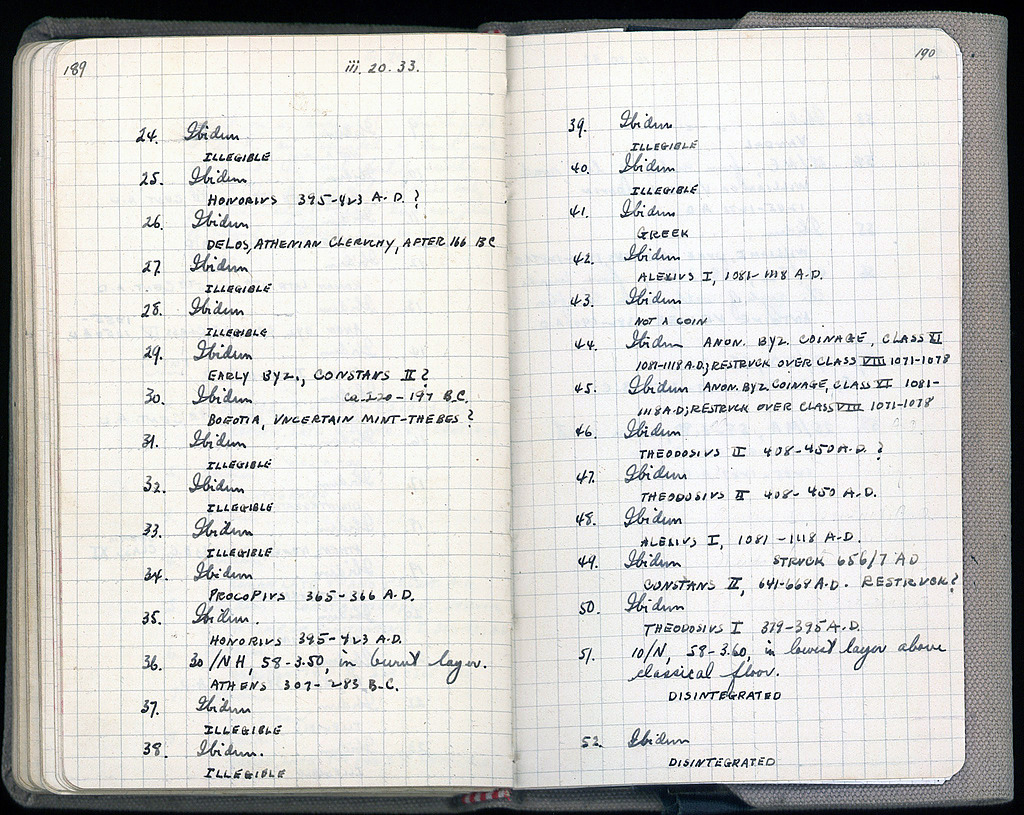 189
iii. 20. 33.
24. Ibidem
ILLEGIBLE
25. Ibidem
HONORIUS 395-423 A.D. ?
26. Ibidem
DELOS, ATHENIAN CLERUCHY, AFTER 166 BC
27. Ibidem
ILLEGIBLE
28. Ibidem
ILLEGIBLE
29. Ibidem
EARLY BYZ., CONSTANS II ?
30. Ibidem ca. 220-197 B.C.
BOEOTIA, UNCERTAIN MINT-THEBES ?
31. Ibidem
ILLEGIBLE
32. Ibidem
ILLEGIBLE
33. Ibidem
ILLEGIBLE
34. Ibidem
PROCOPIUS 365-366 A.D.
35. Ibidem.
HONORIUS 395-423 A.D.
36. 30/NH, 58-3.50, in burnt layer.
ATHENS 307-283 B.C.
37. Ibidem
ILLEGIBLE
38. Ibidem.
ILLEGIBLE
190
39. Ibidem
ILLEGIBLE
40. Ibidem
ILLEGIBLE
41. Ibidem
GREEK
42. Ibidem
ALEXIUS I, 1081-1118 A.D.
43. Ibidem
NOT A COIN
44. Ibidem ANON. BYZ. COINAGE, CLASS XI
1081-1118 A.D; RESTRUCK OVER CLASS VIII 1071-1078
45. Ibidem ANON. BYZ. COINAGE, CLASS XI 1081-
1118 A.D; RESTRUCK OVER CLASS VIII 1071-1078
46. Ibidem
THEODOSIUS II 408-450 A.D. ?
47. Ibidem
THEODOSIUS II 408-450 A.D.
48. Ibidem
ALEXIUS I, 1081-1118 A.D.
49. Ibidem STRUCK 656/7 AD
CONSTANS II, 641-668 A.D. RESTRUCK?
50. Ibidem
THEODOSIUS I 379-395 A.D.
51. 10/N, 58-3.60, in lowest layer above
classical floor.
DISINTEGRATED
52. Ibidem
DISINTEGRATED